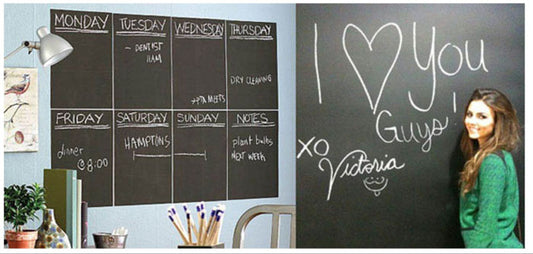 MONDAY
TUESDAY
WEDNESDAY
THURSDAY
~ DENTIST
11AM
DRY CLEANING
→PTA MEETS
FRIDAY
SATURDAY
SUNDAY
NOTES
dinner
@8:00
HAMPTONS
plant bulbs
NEXT WEEK
I ♡ You
Guys!
XO
Victoria